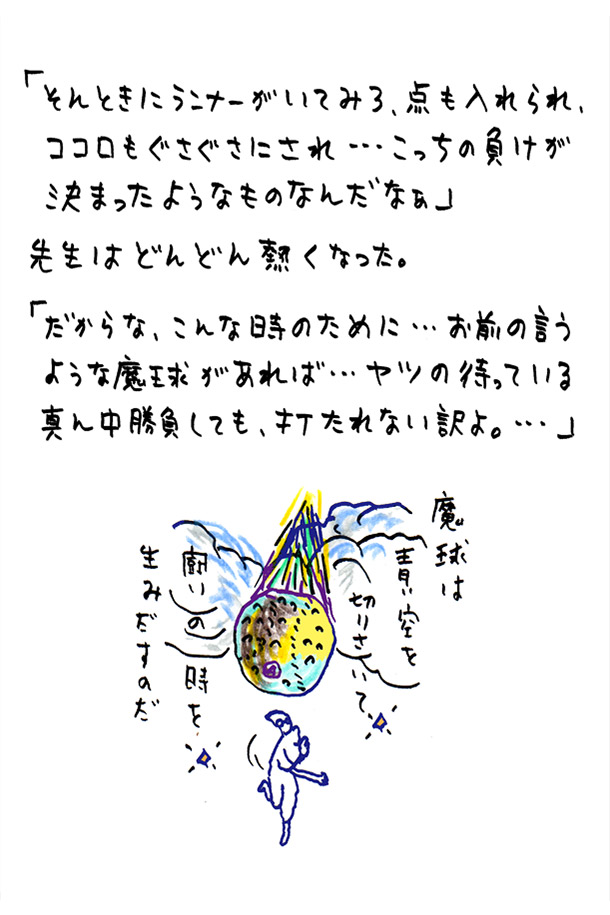 「そんときにランナーがいてみろ、点も入れられ、
ココロもぐさぐさにされ…こっちの負けが
決まったようなものなんだなぁ」
先生はどんどん熱くなった。
「だからな、こんな時のために…お前の言う
ような魔球があれば…ヤツの待っている
真ん中勝負しても、打たれない訳よ。…」
魔球は
青い空を
切りさいて
闘いの時を
生みだすのだ